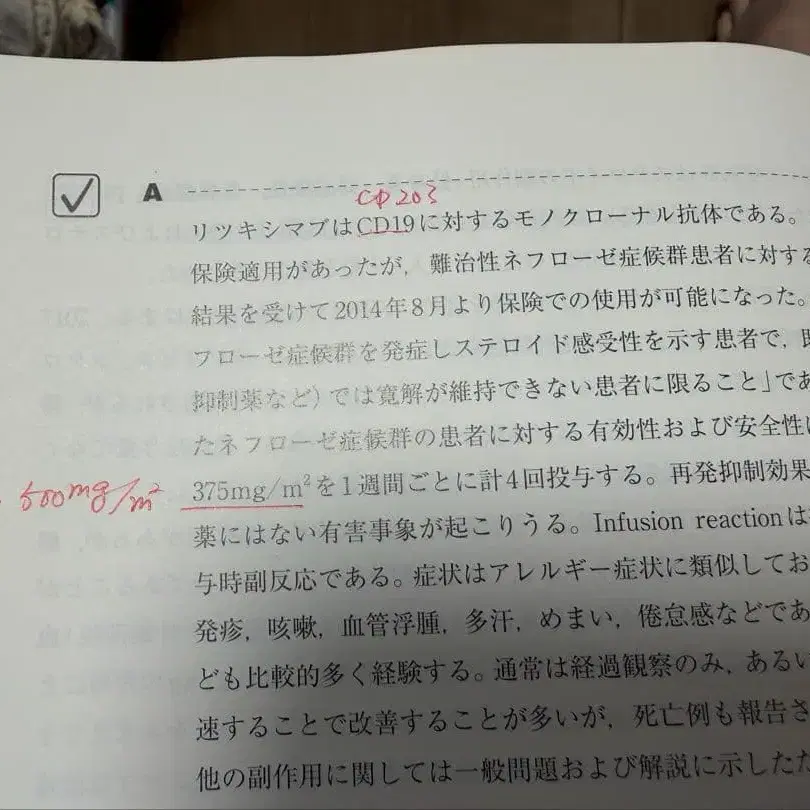 A
CD203
リツキシマブはCD19に対するモノクローナル抗体である。
保険適用があったが，難治性ネフローゼ症候群患者に対する
結果を受けて2014年8月より保険での使用が可能になった。
フローゼ症候群を発症しステロイド感受性を示す患者で，既
抑制薬など）では寛解が維持できない患者に限ること」であ
たネフローゼ症候群の患者に対する有効性および安全性は
500mg/m²
375mg/m²を1週間ごとに計4回投与する。再発抑制効果
薬にはない有害事象が起こりうる。Infusion reactionは
与時副反応である。症状はアレルギー症状に類似してお
発疹，咳嗽，血管浮腫，多汗，めまい，倦怠感などであ
ども比較的多く経験する。通常は経過観察のみ，あるい
速することで改善することが多いが，死亡例も報告さ
他の副作用に関しては一般問題および解説に示したた